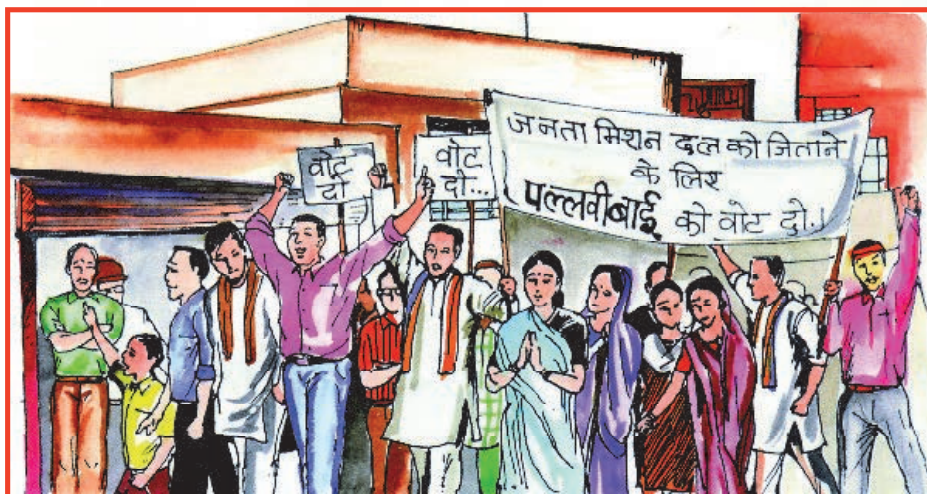 वोट
दो
वोट
दो...
जनता मिशन दल को जिताने
के लिए
पल्लवीबाई को वोट दो.!